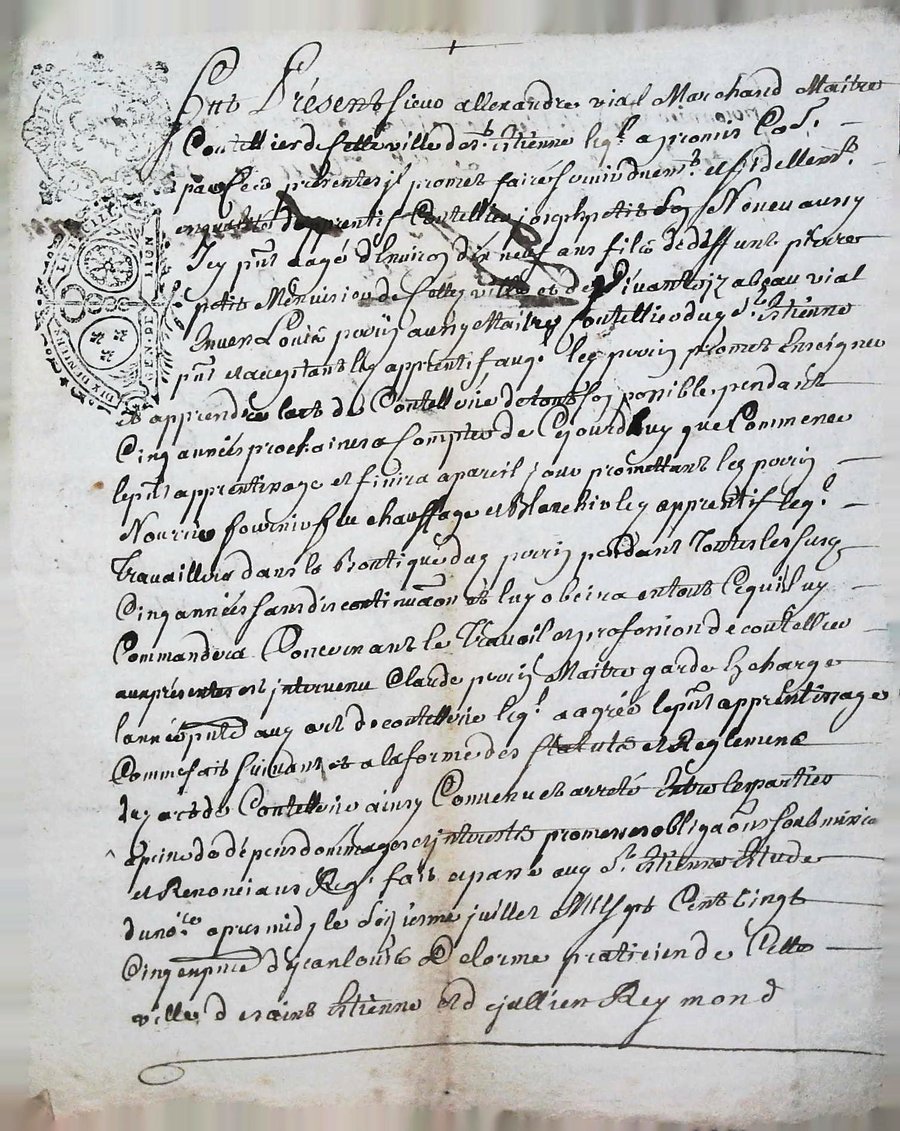 Fut Présent sieur allexandre vial Marchand Maitre
Coutellier de cette ville de st. Etienne leql. a promis Co[...]
par ces présentes il promet faire servir duemt. et fidellemt.
en qualité d'apprentif Coutellier joseph petit son Neveu aussy
Icy pnt aagé d'Environ dix neuf ans fils de deffunt pierre
petit Menuisier de cette ville et de vivante izabeau vial
Envers Louis perrin aussy Maitre Coutellier dud st. Etienne
pnt et acceptant led apprentif auql. led perrin promet Enseigner
et apprendre l'art de Coutellerie de tout son possible pendant
Cinq années prochaines a Compter de Cejourd'huy que Commence
le pnt apprentissage et finira a pareil jour promettant led perrin
Nourrir fournir feu chauffage et Blanchir led apprentif leql.
Travaillera dans la Boutique dud perrin pendant Toutes les susd
Cinq années sans discontinuaon et luy obeira en tout Ce qu'il luy
Commandera Concernant le Travail et profession de coutellier
aux présentes est intervenu Claude perrin Maitre garde En charge
l'année pnte aud art de coutellerie leql. a agréé le pnt apprentissage
Comme fait suivant et a la forme des statuts et Reglemens
dud art de Coutellerie ainsy Convenu et arreté Entre les parties
a peine de dépens dommages et interests promesses obligaons soubmissions
et Renonciaons Req. fait et passé aud st. Etienne Etude
du nore. apres midy le juillet Mil sept Cent vingt
Cinq en pnce de jean louis Delorme praticien de Cette
ville de saint Etienne et de jullien Reymond
GEN. DE LION
DIX DENIERS